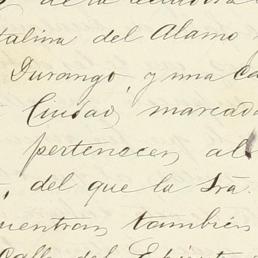 de la
talina del Alamo
Durango, y una ca
Ciudad, marcada
pertenecen al
, del que la Srâ.
uentran también
Calle del Espírit